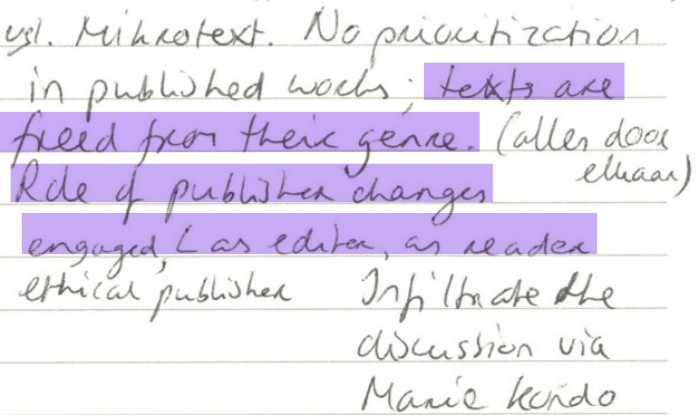 vgl. Mikrotext. No prioritization
in published works; texts are
freed from their genre. (alles door
elkaar)
Role of publisher changes
engaged, as editor, as reader
ethical publisher
Infiltrate the
discussion via
Marie Kondo